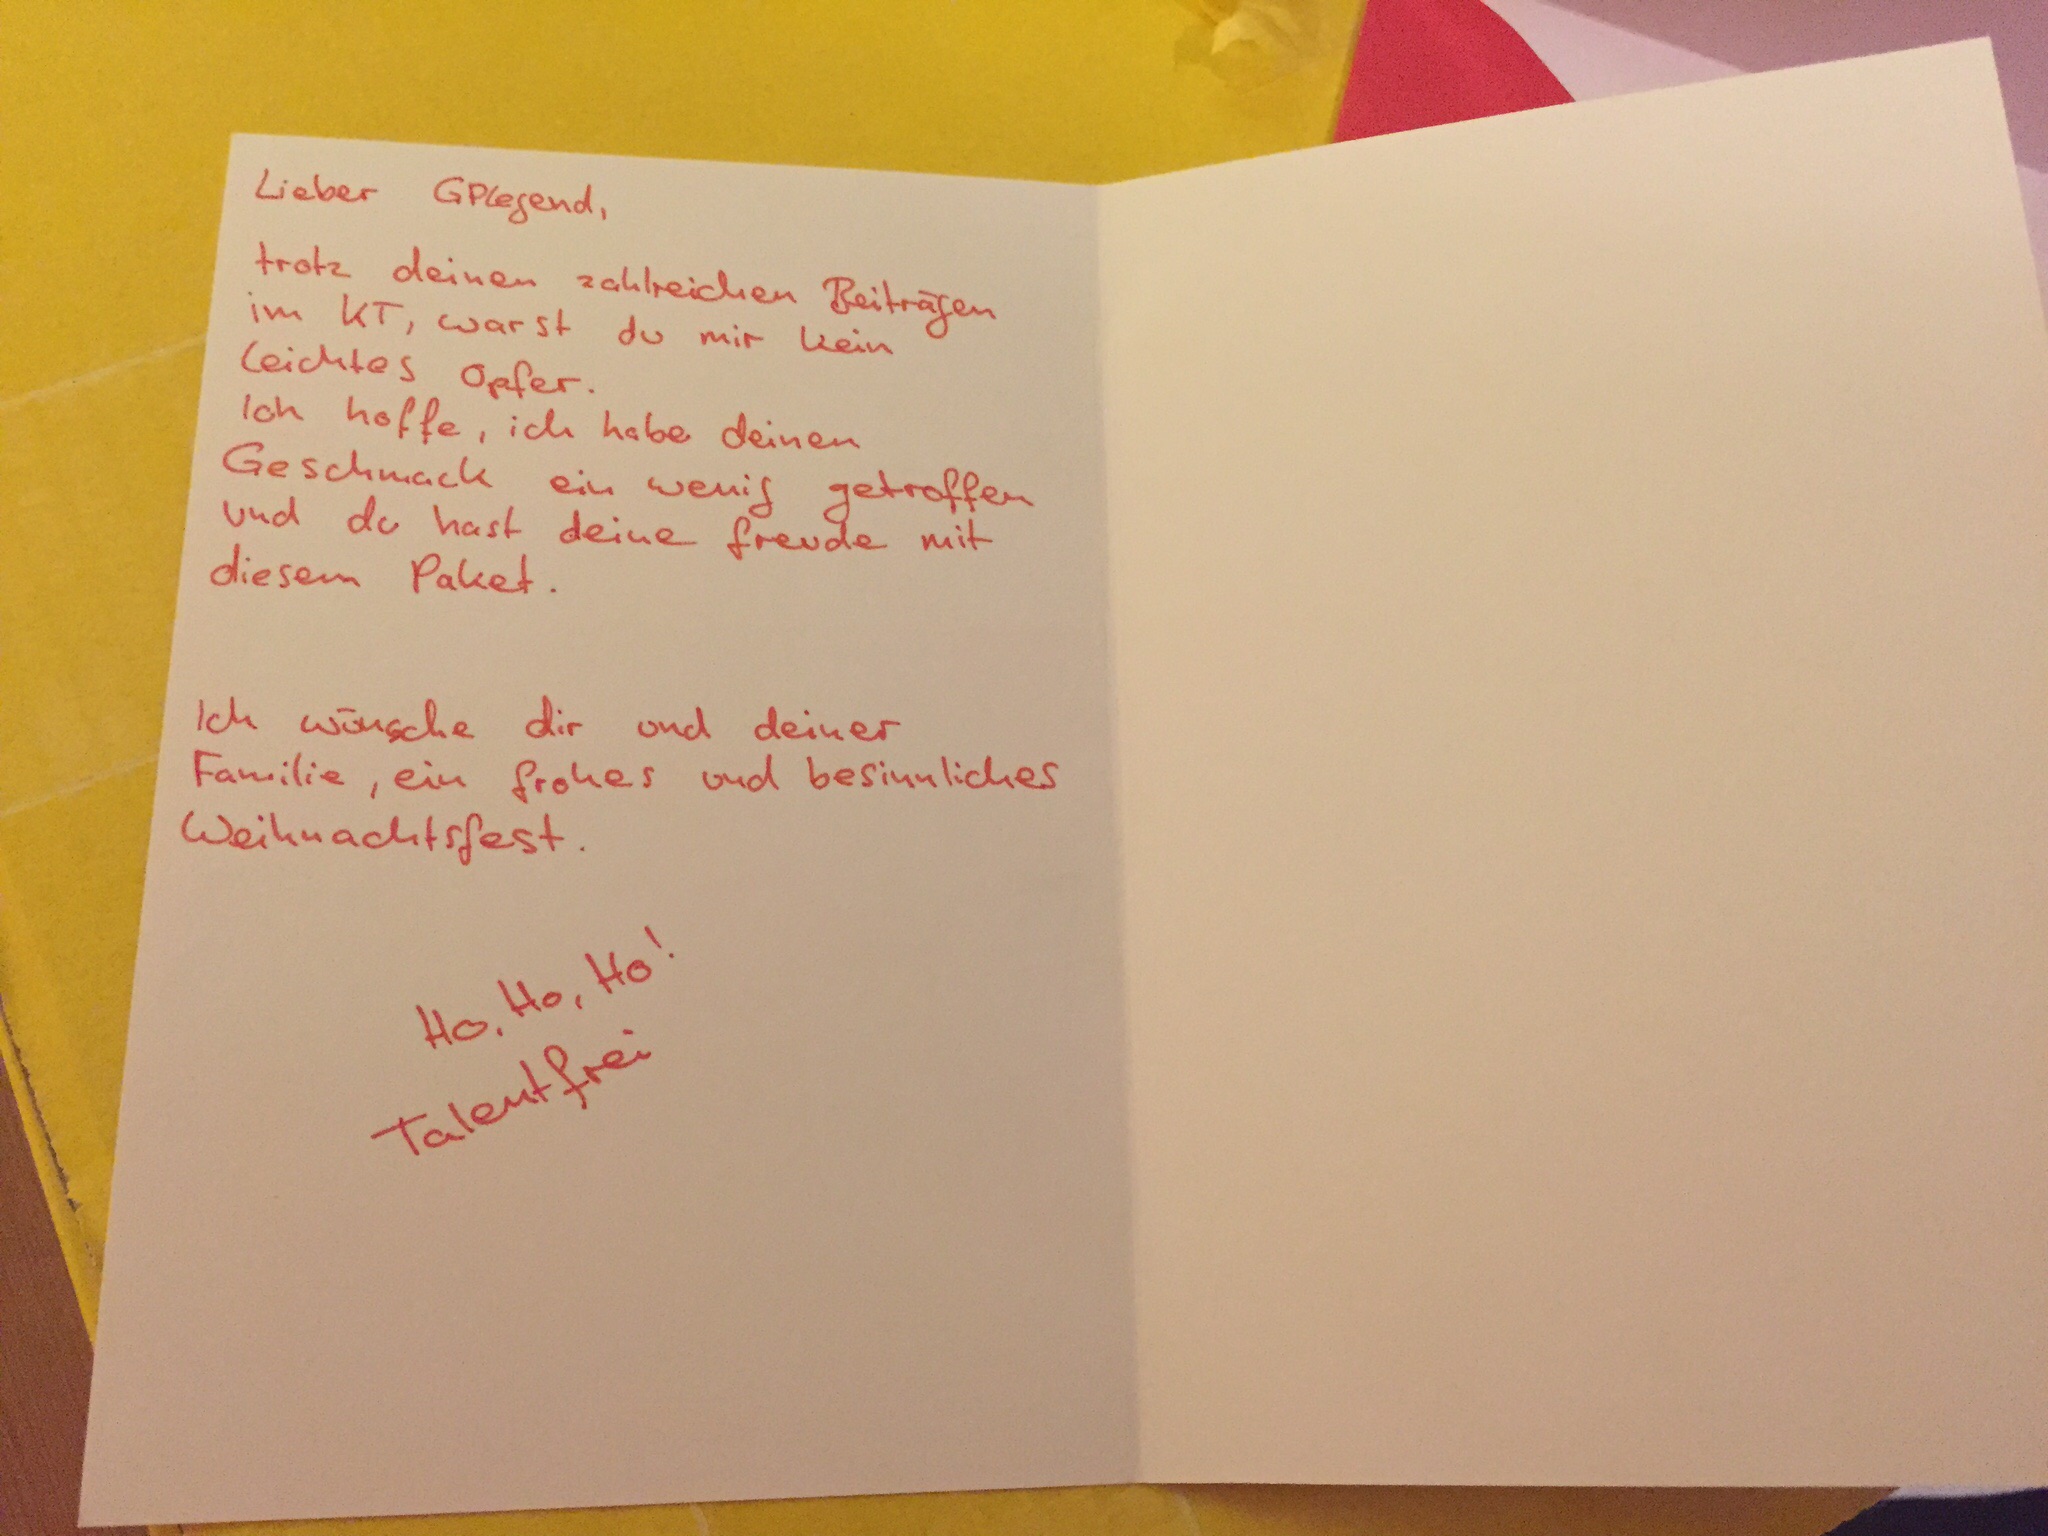 Lieber GPLegend,
trotz deinen zahlreichen Beiträgen
im KT, warst du mir kein
leichtes Opfer.
Ich hoffe, ich habe deinen
Geschmack ein wenig getroffen
und du hast deine freude mit
diesem Paket.
Ich wünsche dir und deiner
Familie, ein frohes und besinnliches
Weihnachtsfest.
Ho, Ho, Ho!
Talentfrei